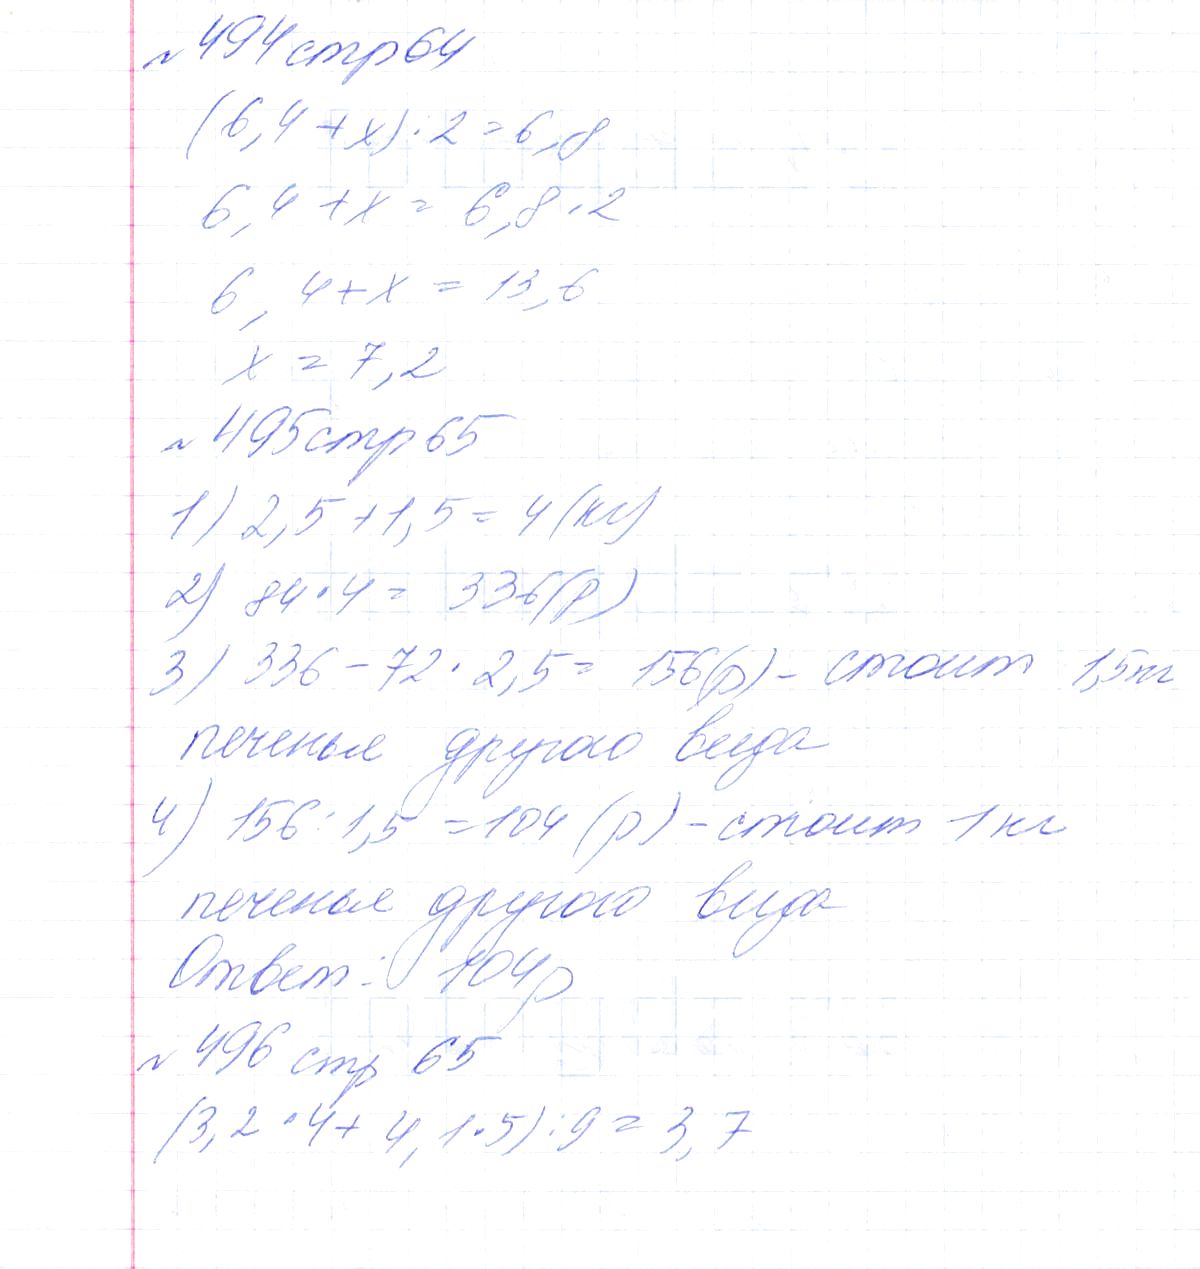 № 494 стр 64
(6,4 + x) : 2 = 6,8
6,4 + x = 6,8 · 2
6,4 + x = 13,6
x = 7,2
№ 495 стр 65
1) 2,5 + 1,5 = 4 (кг)
2) 84 · 4 = 336 (р)
3) 336 - 72 · 2,5 = 156 (р) - стоит 1,5 кг
печенья другого вида
4) 156 : 1,5 = 104 (р) - стоит 1 кг
печенья другого вида
Ответ: 104 р
№ 496 стр 65
(3,2 · 4 + 4,1 · 5) : 9 = 3,7